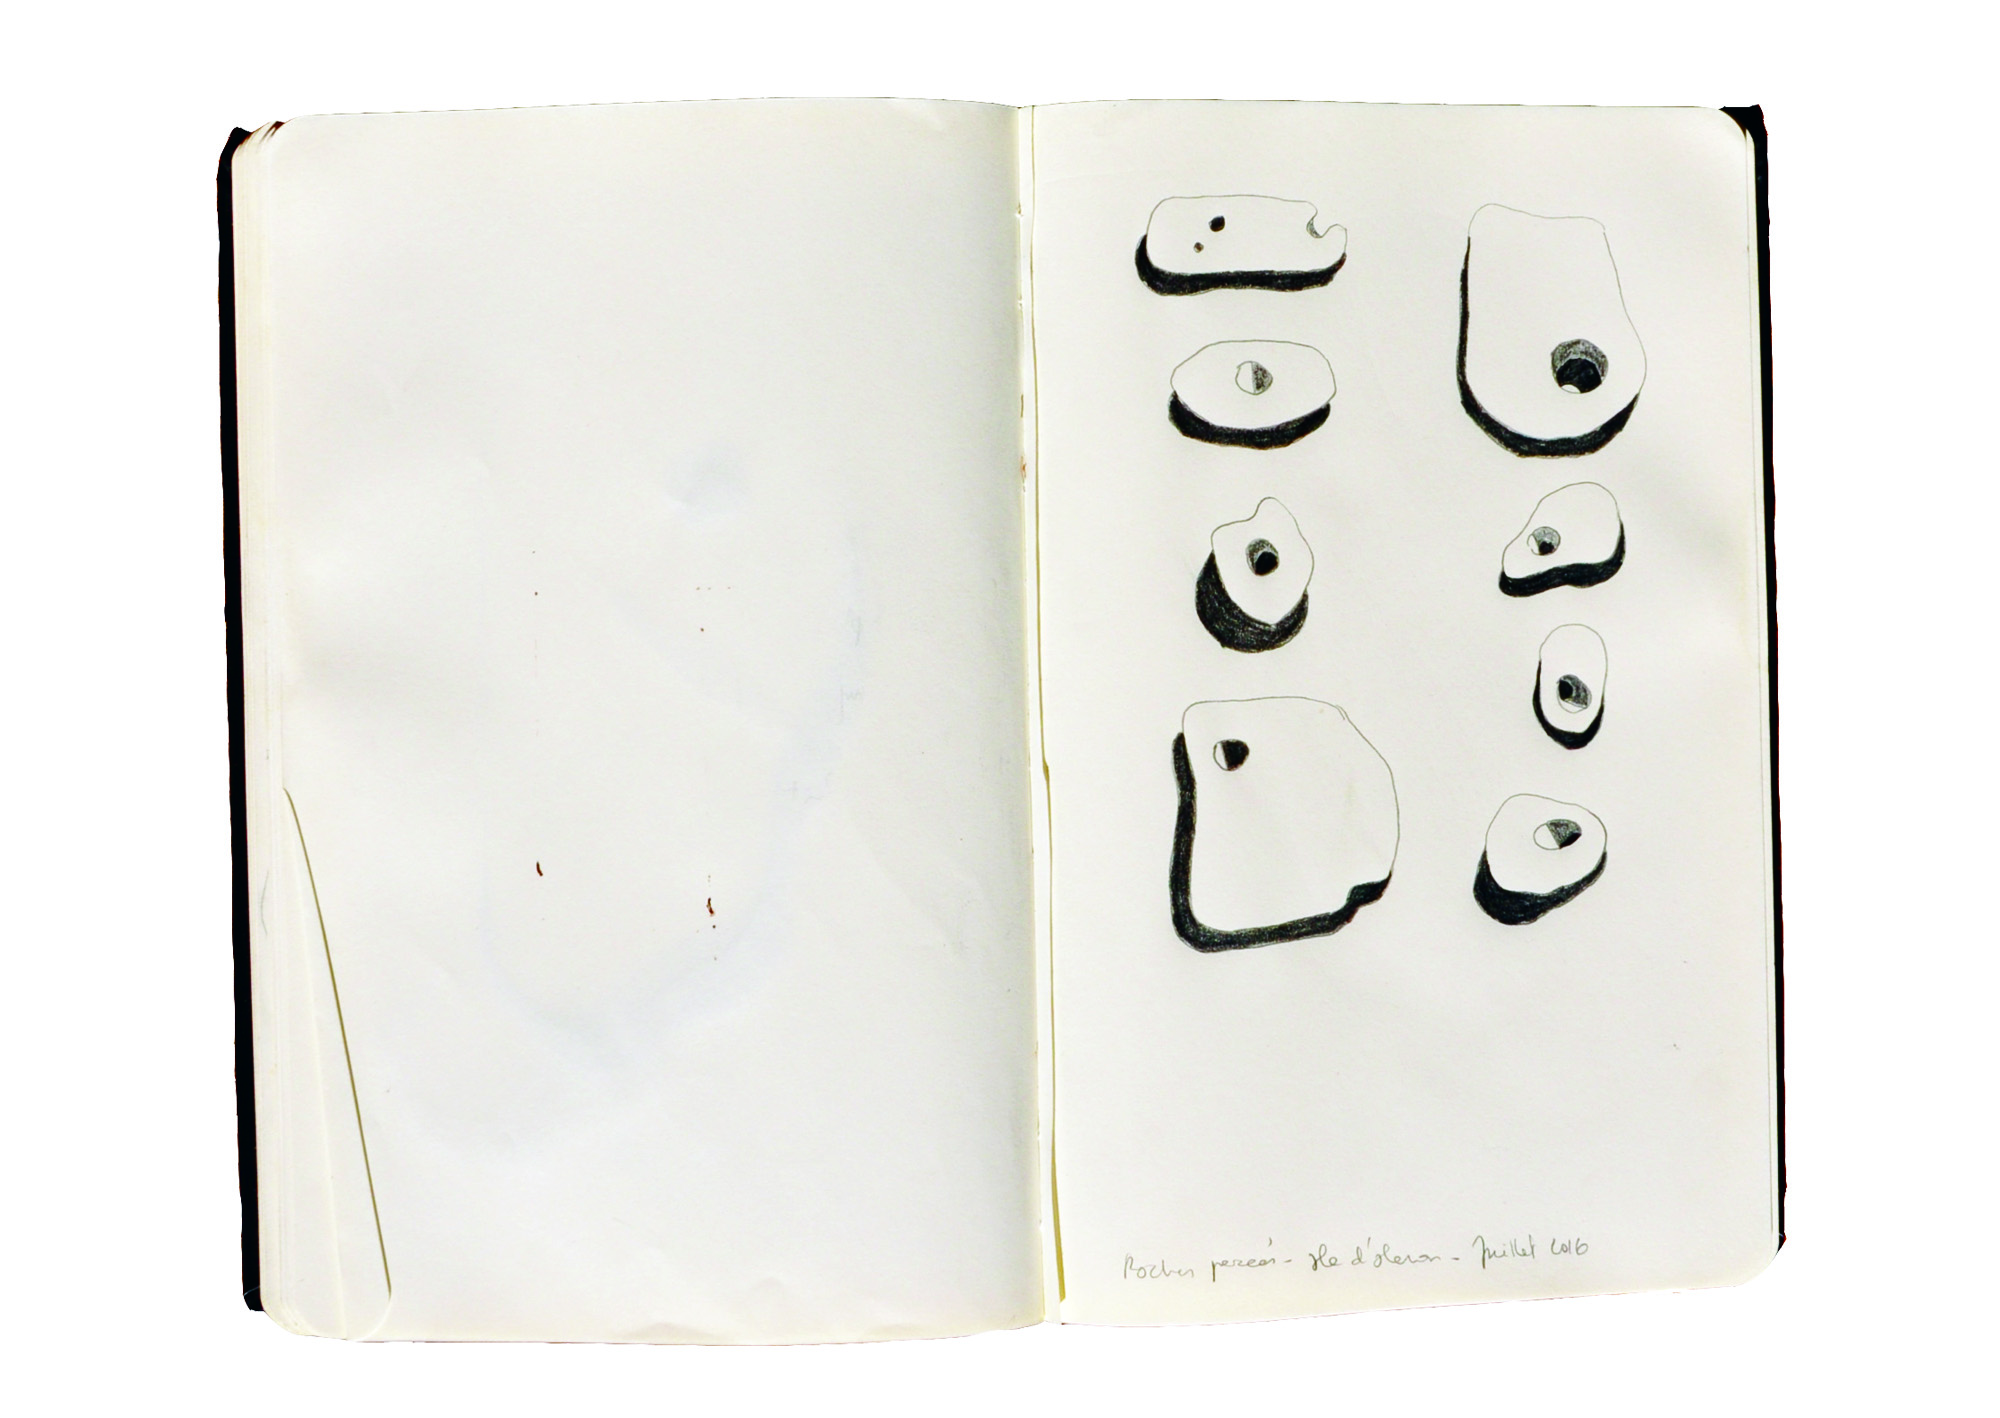 Roches percées - Ile d'oleron - Juillet 2016